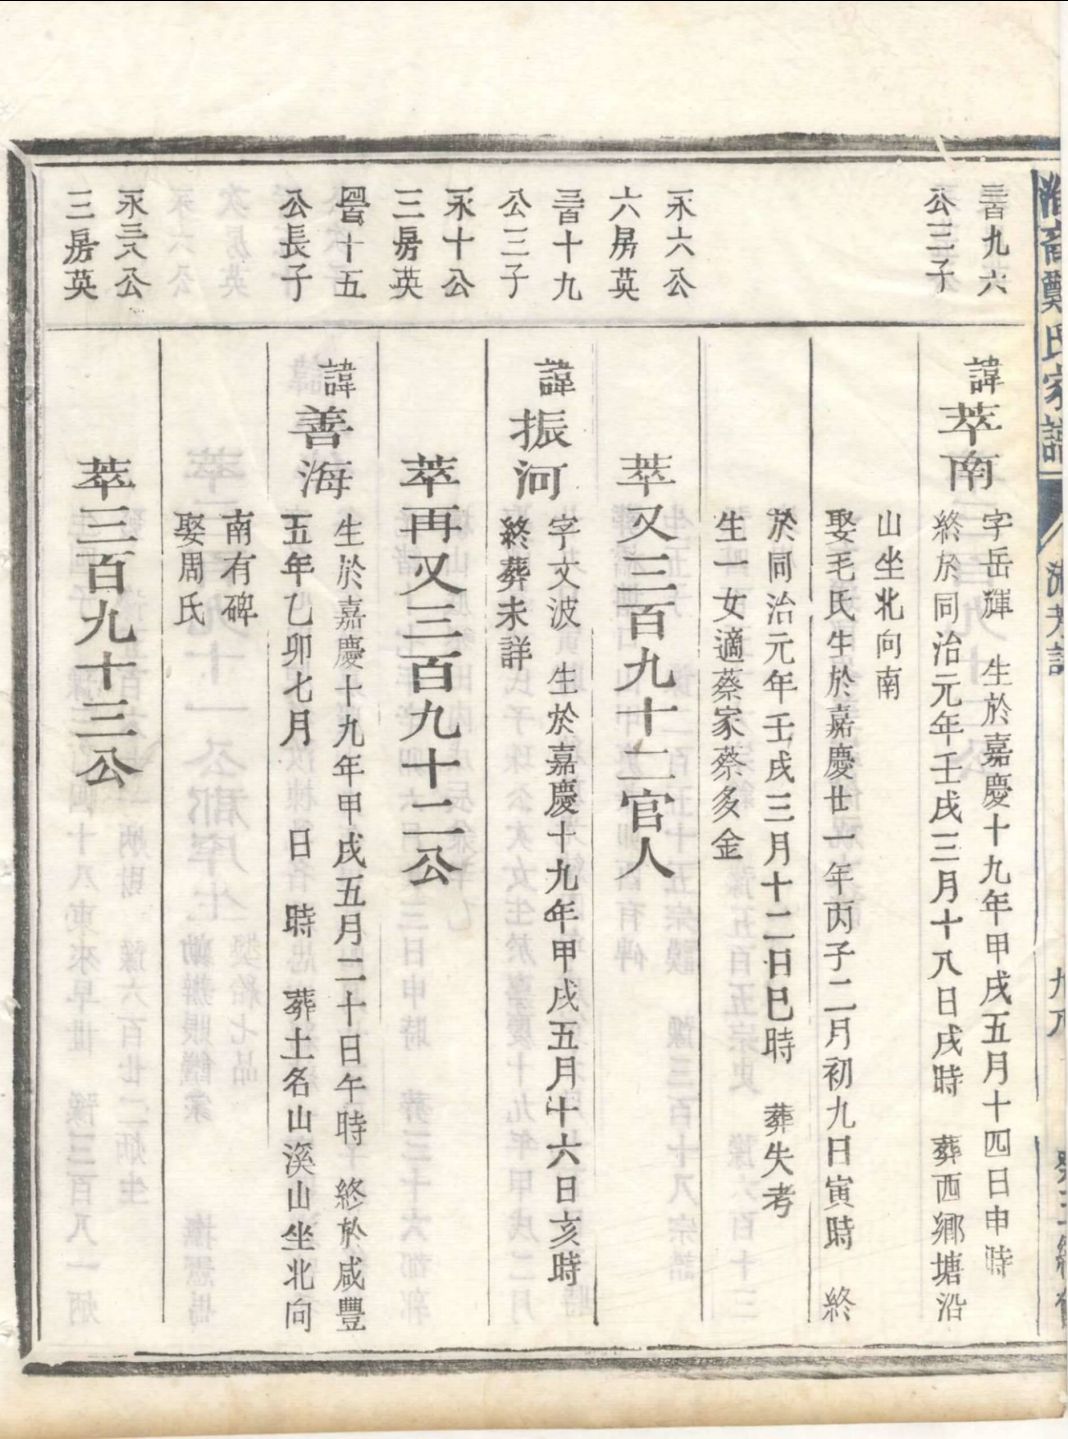 鄭氏家譜
三百九六
公三子
諱萃南
字岳輝　生於嘉慶十九年甲戌五月十四日申時
終於同治元年壬戌三月十八日戌時　葬西鄉塘沿
山坐北向南
娶毛氏生於嘉慶廿一年丙子二月初九日寅時　終
於同治元年壬戌三月十二日巳時　葬失考
生一女適蔡家蔡多金
永六公
六房英
萃又三百九十二官人
三百十九
公三子
諱振河
字文波　生於嘉慶十九年甲戌五月十六日亥時
終葬未詳
永十公
三房英
萃再又三百九十二公
四百十五
公長子
諱善海
生於嘉慶十九年甲戌五月二十日午時　終於咸豐
五年乙卯七月　日　時　葬土名山溪山坐北向
南有碑
娶周氏
永三八公
三房英
萃三百九十三公